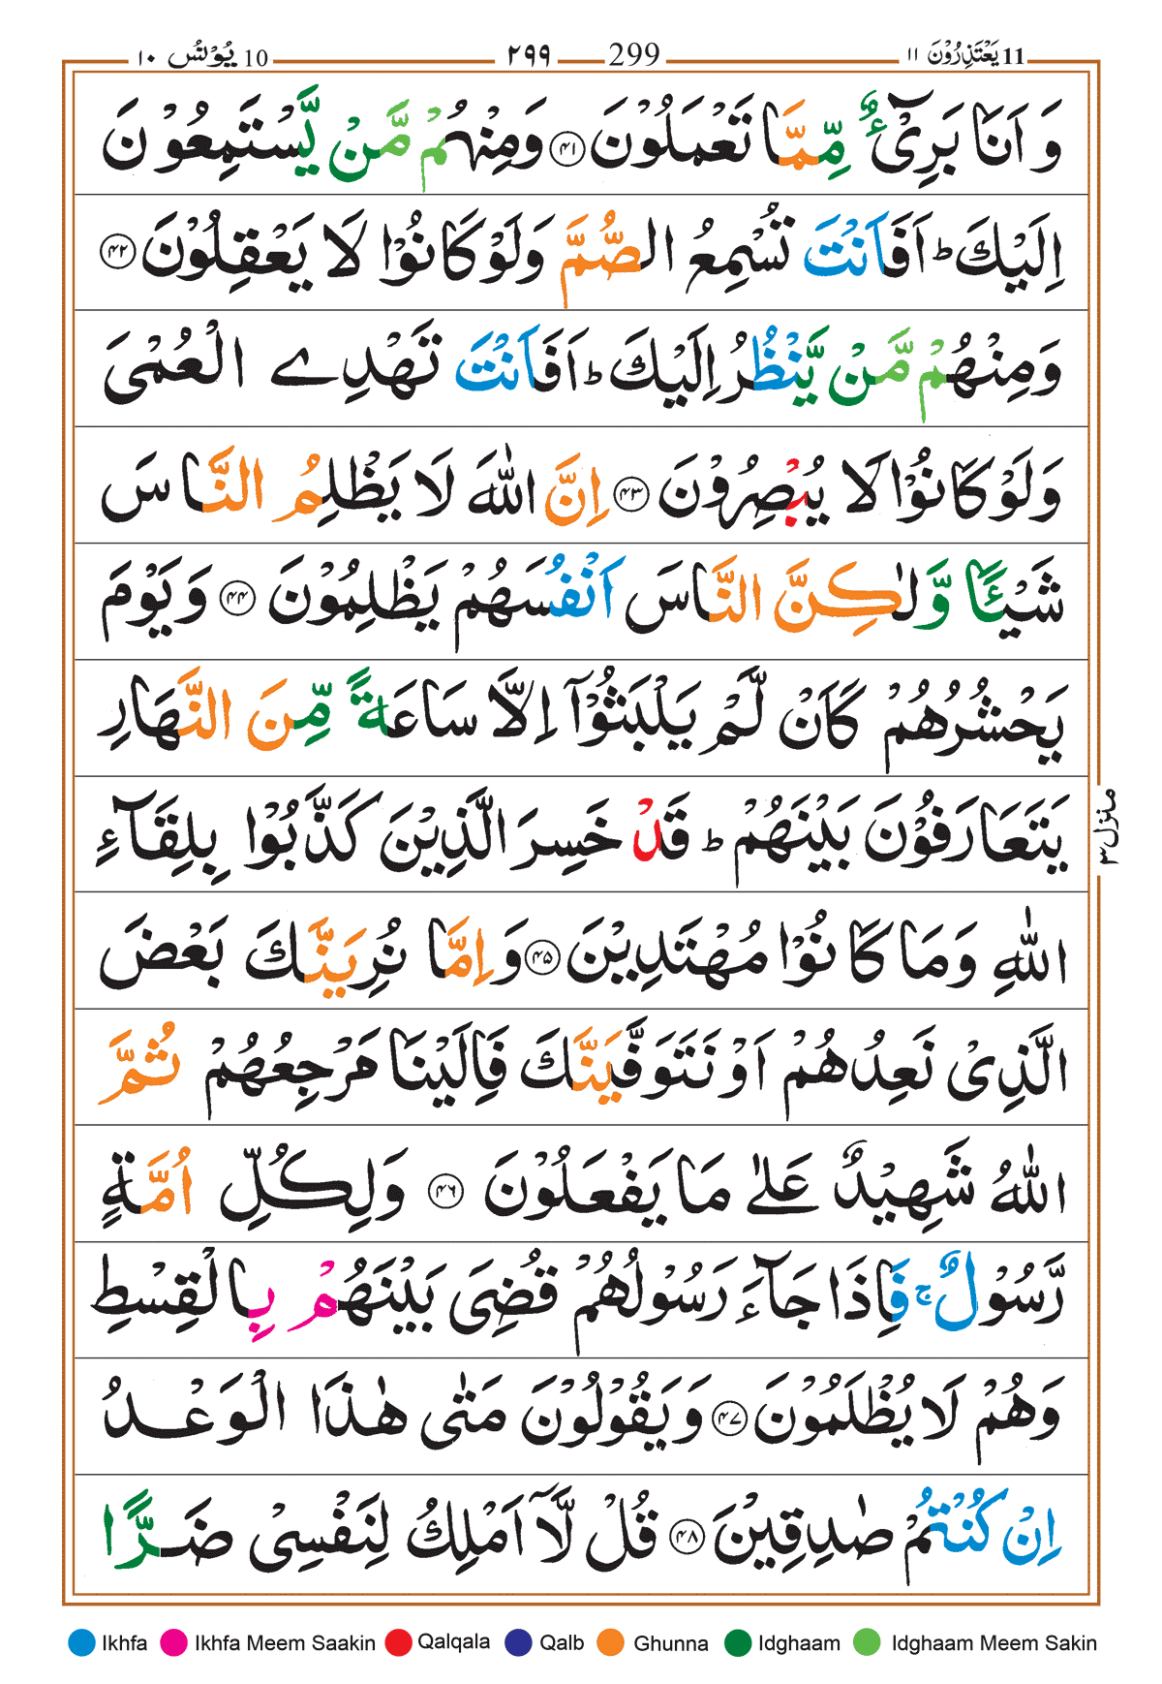 11 يَعْتَذِرُوْنَ ۱۱ 299 ۲۹۹ 10 يُوْنُسُ ۱۰
وَ اَنَا بَرِیْٓءٌ مِّمَّا تَعْمَلُوْنَ ﴿۴۱﴾ وَمِنْهُمْ مَّنْ يَّسْتَمِعُوْنَ
اِلَيْكَ ؕ اَفَاَنْتَ تُسْمِعُ الصُّمَّ وَلَوْ كَانُوْا لَا يَعْقِلُوْنَ ﴿۴۲﴾
وَمِنْهُمْ مَّنْ يَّنْظُرُ اِلَيْكَ ؕ اَفَاَنْتَ تَهْدِے الْعُمْیَ
وَلَوْ كَانُوْا لَا يُبْصِرُوْنَ ﴿۴۳﴾ اِنَّ اللّٰهَ لَا يَظْلِمُ النَّاسَ
شَيْـًٔا وَّلٰكِنَّ النَّاسَ اَنْفُسَهُمْ يَظْلِمُوْنَ ﴿۴۴﴾ وَيَوْمَ
يَحْشُرُهُمْ كَاَنْ لَّمْ يَلْبَثُوْۤا اِلَّا سَاعَةً مِّنَ النَّهَارِ
يَتَعَارَفُوْنَ بَيْنَهُمْ ؕ قَدْ خَسِرَ الَّذِيْنَ كَذَّبُوْا بِلِقَآءِ
اللّٰهِ وَمَا كَانُوْا مُهْتَدِيْنَ ﴿۴۵﴾ وَاِمَّا نُرِيَنَّكَ بَعْضَ
الَّذِیْ نَعِدُهُمْ اَوْ نَتَوَفَّيَنَّكَ فَاِلَيْنَا مَرْجِعُهُمْ ثُمَّ
اللّٰهُ شَهِيْدٌ عَلٰى مَا يَفْعَلُوْنَ ﴿۴۶﴾ وَلِكُلِّ اُمَّةٍ
رَّسُوْلٌ ۚ فَاِذَا جَآءَ رَسُوْلُهُمْ قُضِیَ بَيْنَهُمْ بِالْقِسْطِ
وَهُمْ لَا يُظْلَمُوْنَ ﴿۴۷﴾ وَيَقُوْلُوْنَ مَتٰى هٰذَا الْوَعْدُ
اِنْ كُنْتُمْ صٰدِقِيْنَ ﴿۴۸﴾ قُلْ لَّاۤ اَمْلِكُ لِنَفْسِیْ ضَرًّا
منزل ۳
Ikhfa Ikhfa Meem Saakin Qalqala Qalb Ghunna Idghaam Idghaam Meem Sakin